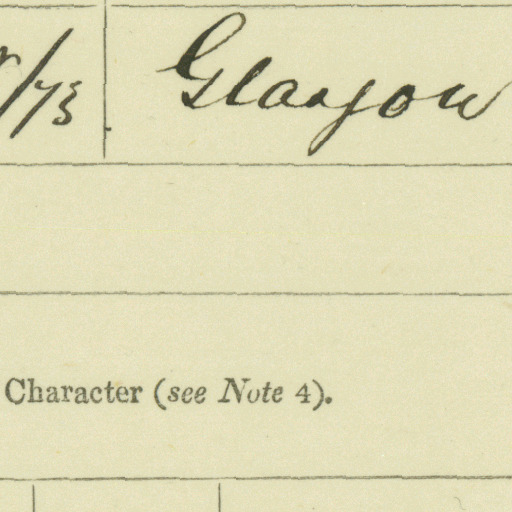 /73 Glasgow
Character (see Note 4).